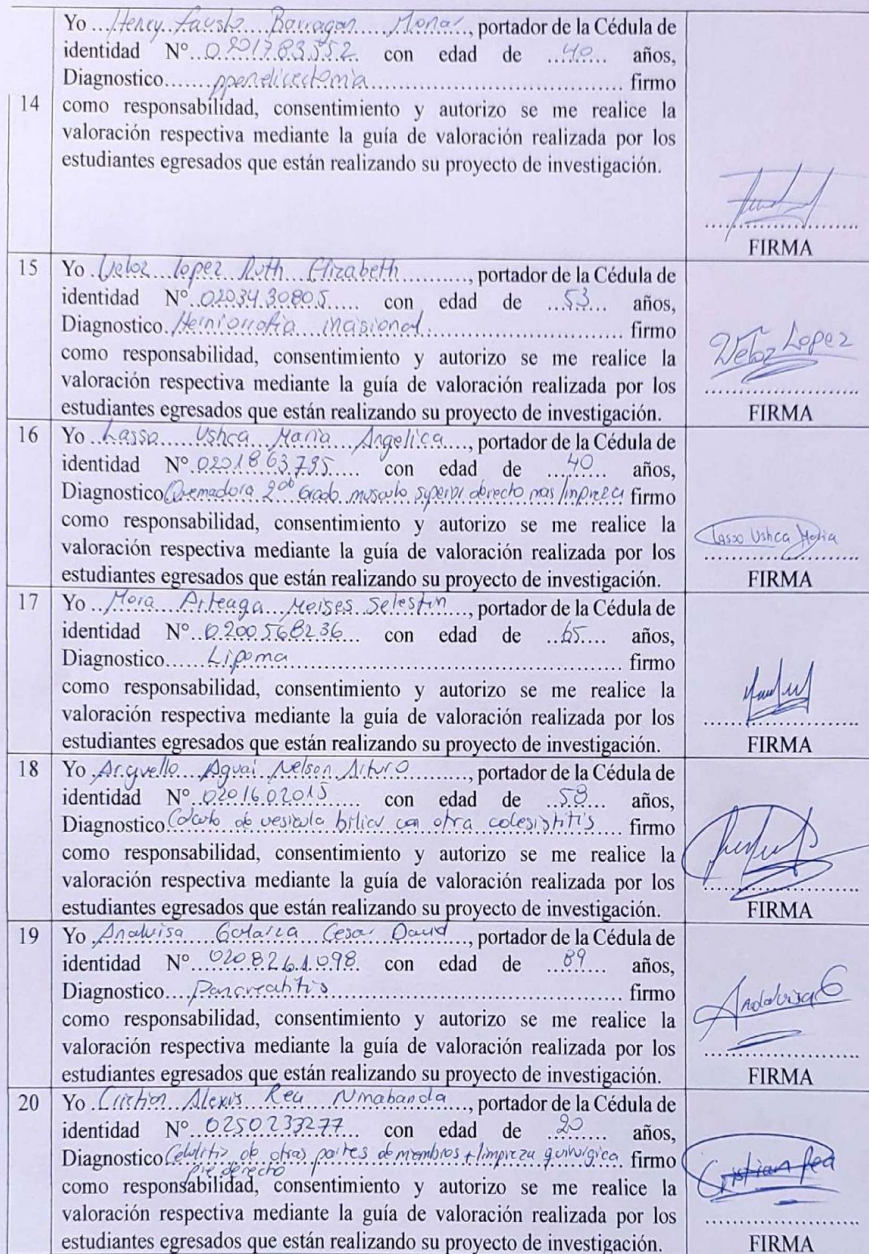 Yo Henry Fausto Barragan Monar, portador de la Cédula de
identidad Nº 0201783552 con edad de 40 años,
Diagnostico ppendicectomia firmo
14 como responsabilidad, consentimiento y autorizo se me realice la
valoración respectiva mediante la guía de valoración realizada por los
estudiantes egresados que están realizando su proyecto de investigación.
FIRMA
15 Yo Veloz Lopez Ruth Elizabeth, portador de la Cédula de
identidad Nº 0203430805 con edad de 53 años,
Diagnostico Herniorrofia incisional firmo
como responsabilidad, consentimiento y autorizo se me realice la
Veloz Lopez
valoración respectiva mediante la guía de valoración realizada por los
estudiantes egresados que están realizando su proyecto de investigación.
FIRMA
16 Yo Lasso Ushca Maria Angelica, portador de la Cédula de
identidad Nº 0201863795 con edad de 40 años,
Diagnostico Quemadora 2do Grado musculo derecto mas limpieza firmo
como responsabilidad, consentimiento y autorizo se me realice la
Lasso Ushca Maria
valoración respectiva mediante la guía de valoración realizada por los
estudiantes egresados que están realizando su proyecto de investigación.
FIRMA
17 Yo Mora Arteaga Moises Selestin, portador de la Cédula de
identidad Nº 0200568236 con edad de 65 años,
Diagnostico Lipoma firmo
como responsabilidad, consentimiento y autorizo se me realice la
valoración respectiva mediante la guía de valoración realizada por los
estudiantes egresados que están realizando su proyecto de investigación.
FIRMA
18 Yo Arguello Aguai Nelson Arturo, portador de la Cédula de
identidad Nº 0201602015 con edad de 58 años,
Diagnostico Calculo de vesicula biliar con otra colesistitis firmo
como responsabilidad, consentimiento y autorizo se me realice la
valoración respectiva mediante la guía de valoración realizada por los
estudiantes egresados que están realizando su proyecto de investigación.
FIRMA
19 Yo Analuisa Galarza Cesar David, portador de la Cédula de
identidad Nº 0208261098 con edad de 89 años,
Diagnostico Pancreatitis firmo
como responsabilidad, consentimiento y autorizo se me realice la
valoración respectiva mediante la guía de valoración realizada por los
estudiantes egresados que están realizando su proyecto de investigación.
FIRMA
20 Yo Cristian Alexis Rea Numabanda, portador de la Cédula de
identidad Nº 0250233277 con edad de 20 años,
Diagnostico Celulitis de otras partes de miembros + limpieza quirurgica firmo
pie derecho
como responsabilidad, consentimiento y autorizo se me realice la
Cristian Rea
valoración respectiva mediante la guía de valoración realizada por los
estudiantes egresados que están realizando su proyecto de investigación.
FIRMA